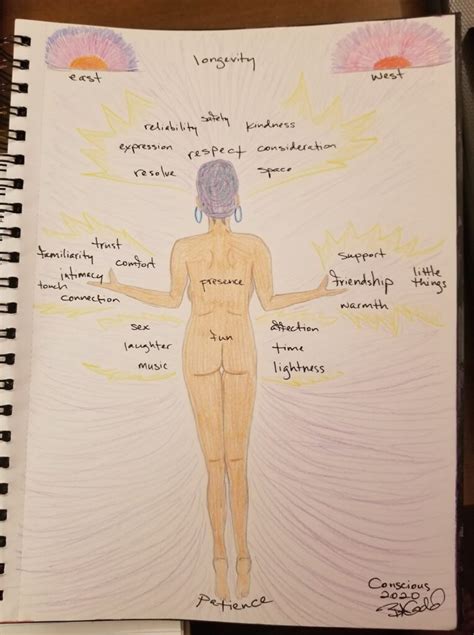 east
longevity
west
reliability safety kindness
expression respect consideration
resolve space
trust
familiarity comfort
intimacy
touch
connection
support
friendship little things
warmth
presence
sex
laughter
music
fun
affection
time
lightness
patience
Conscious
2020